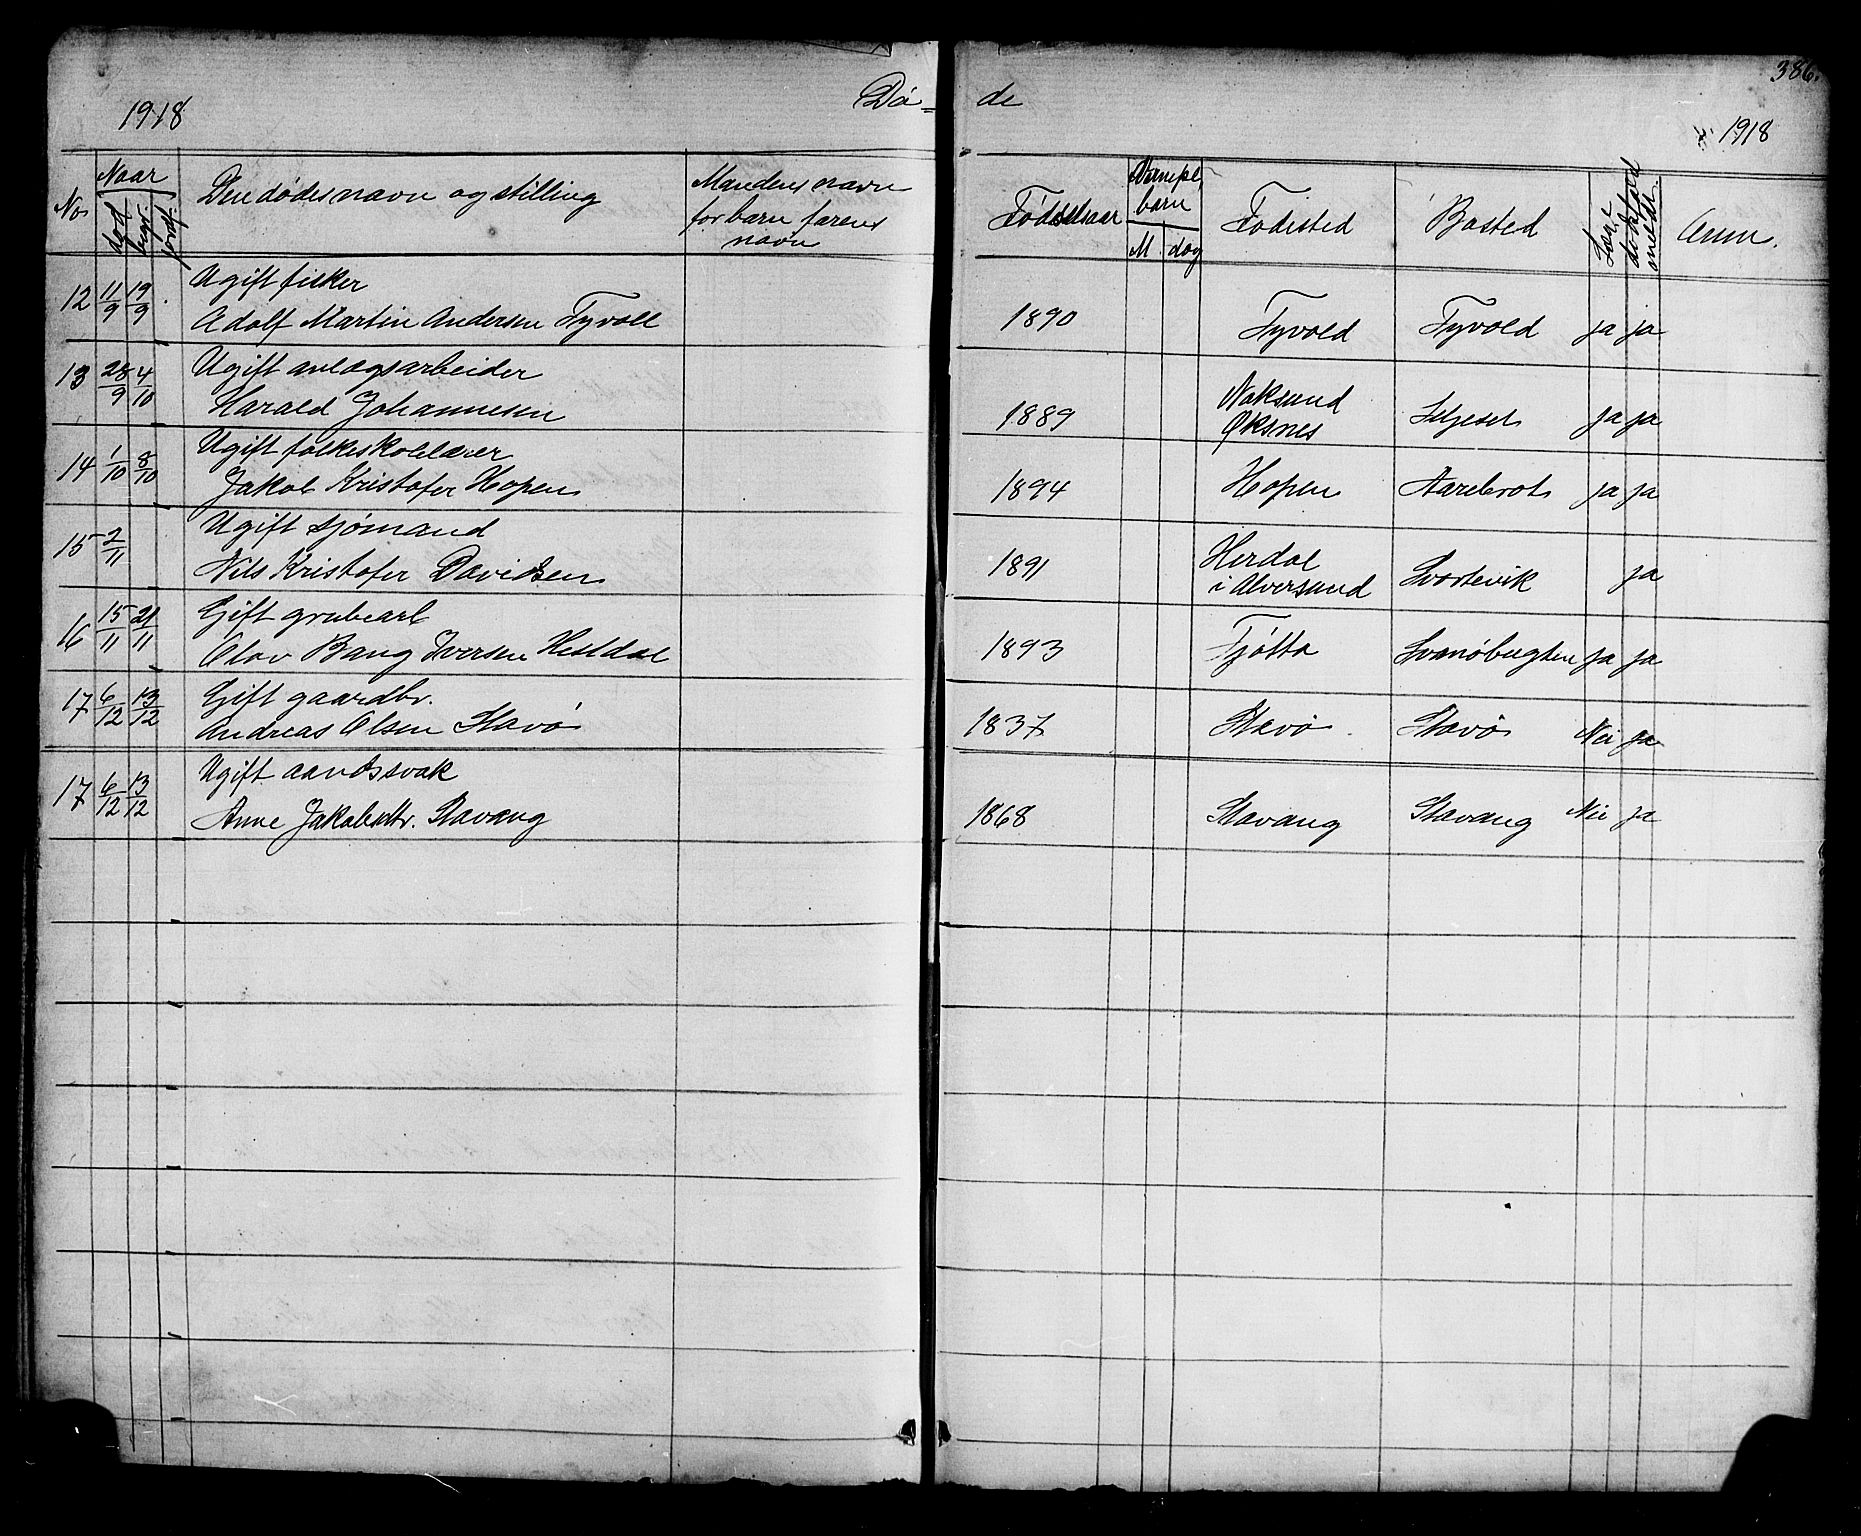 386.
1918 Dø- de 1918
No Naar død begr. jordf. Den dødes navn og stilling Mandens navn for barn farens navn Fødselsaar barn M. dag Fødested Bosted Læge dødsfald anmeldt Anm.
Ugift fisker
12 11/9 19/9 Adolf Martin Andersen Tyvoll 1890 Tyvold Tyvold ja ja
13 28/9 4/10 Ugift anlægsarbeider
Harald Johannesen 1889 Øksnes Seljeset ja ja
14 1/10 8/10 Ugift folkeskolelærer
Jakob Kristofer Hopen 1894 Hopen Aarebrot ja ja
15 2/11 Ugift sjømand
Nils Kristofer Davidsen 1891 Herdal i Alversund Svortevik ja
16 15/11 21/11 Gift grubearb
Olav Bang Iversen Hestdal 1893 Tjøtta Svanøbugten ja ja
17 6/12 13/12 Gift gaardbr.
Andreas Olsen Stavø 1837 Stavø Stavø Nei ja
17 6/12 13/12 Ugift aandssvak
Anne Jakobsdtr. Stavang 1868 Stavang Stavang Nei ja